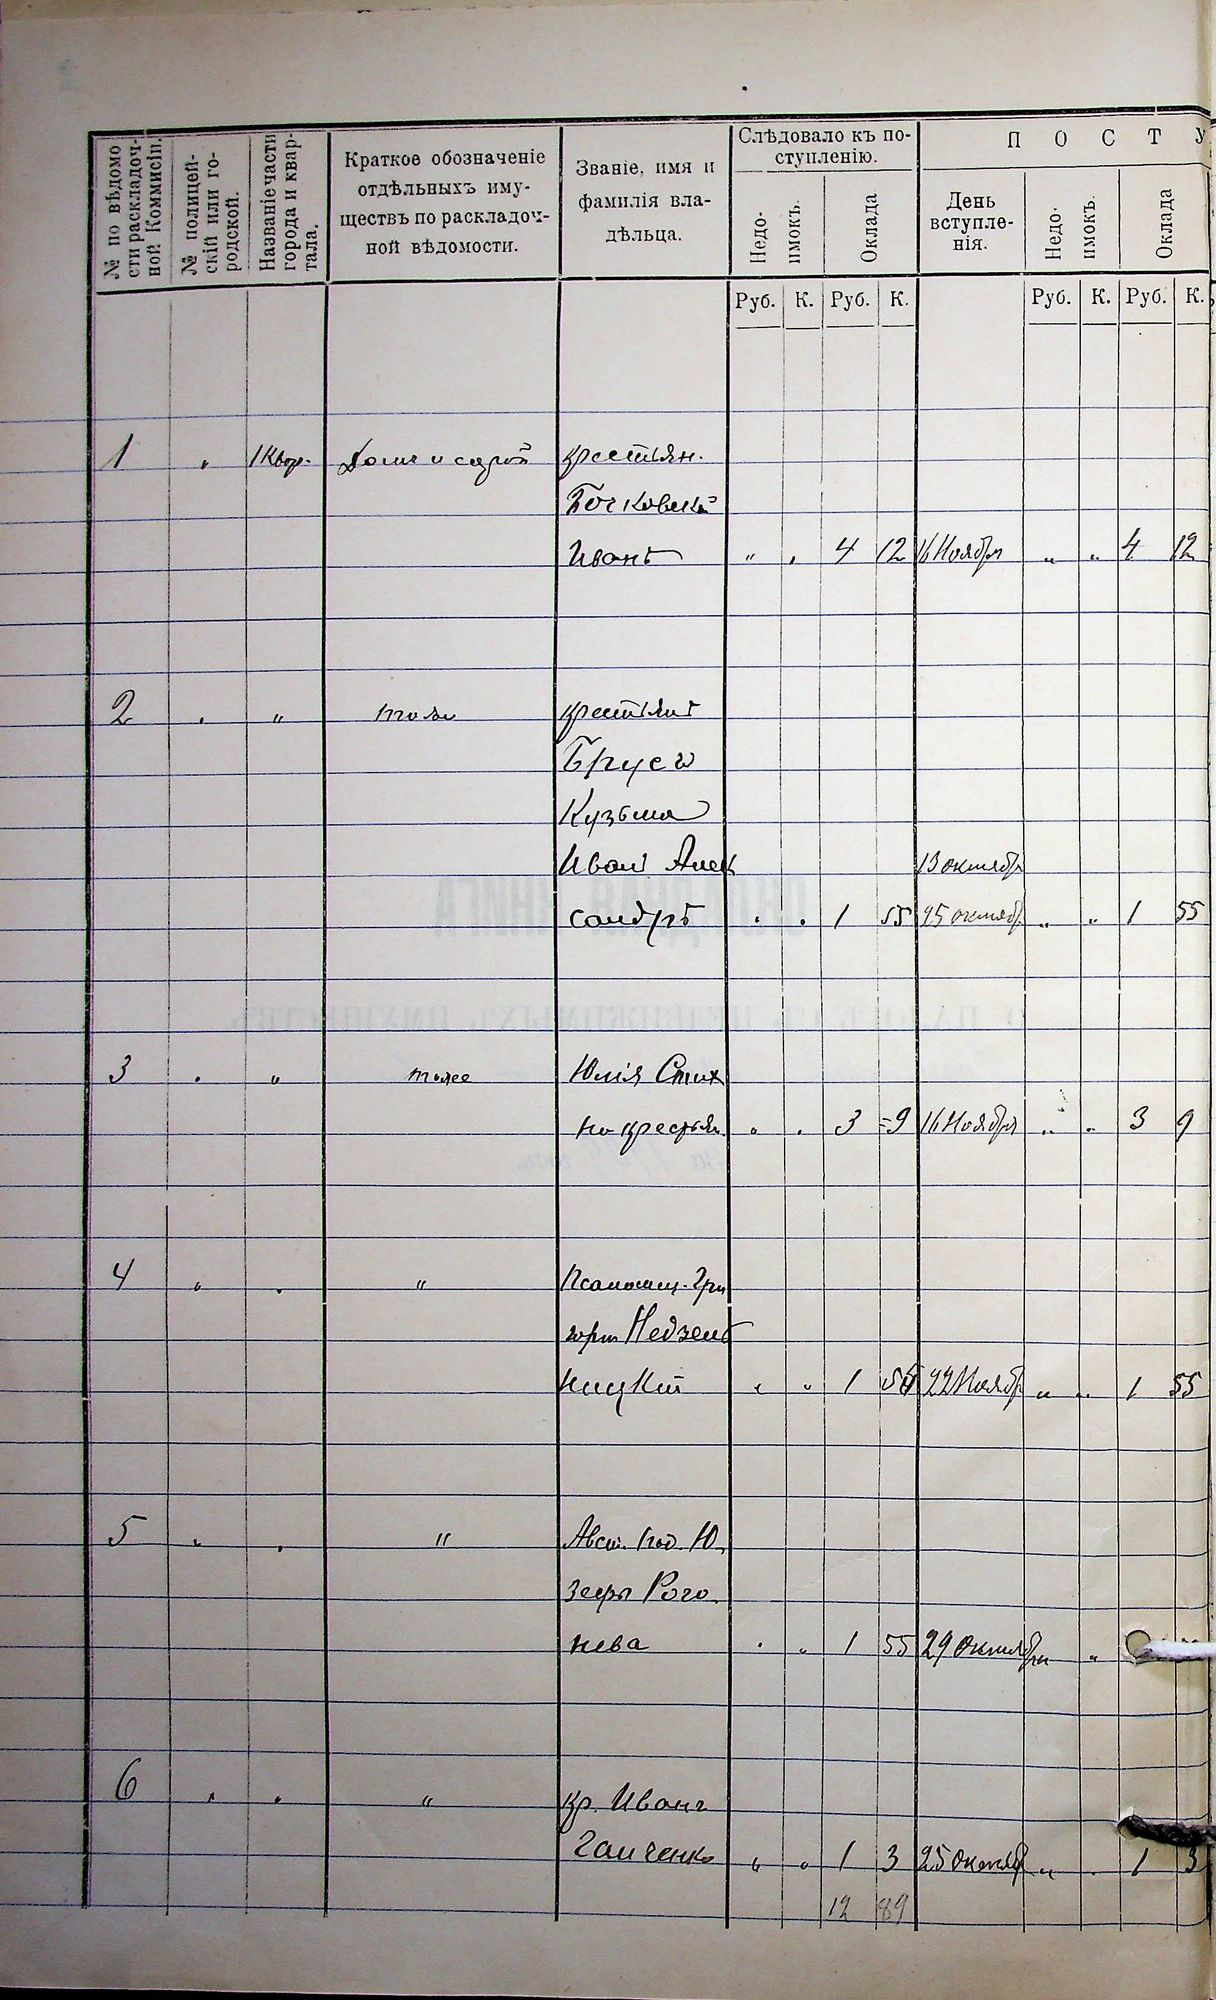 № по вѣдомо
сти раскладоч-
ной Коммисіи.
№ полицей-
скій или го-
родской.
Названіе части
города и квар-
тала.
Краткое обозначеніе
отдѣльныхъ иму-
ществъ по раскладоч-
ной вѣдомости.
Званіе, имя и
фамилія вла-
дѣльца.
Слѣдовало къ по-
ступленію.
Недо-
имокъ.
Оклада
П О С Т У
День
вступле-
нія.
Недо-
имокъ.
Оклада
Руб. К. Руб. К. Руб. К. Руб. К.
1 " 1 Квар. Домъ и сарай крестьян.
Бочковскій
Иванъ " " 4 12 16 Ноября " " 4 12
2 " " тоже крестьянъ
Брусъ
Кузьма
Иванъ Алек 13 октября
сандръ " " 1 55 25 октябр " " 1 55
3 " " тоже Юлія Стих
но крестьян. " " 3 =9 16 Ноября " " 3 9
4 " " " Псаломщ. Гри
горій Недзель
ницкій " " 1 55 22 Ноябр " " 1 55
5 " " " Авст. под. Ю
зефа Рого
нева " " 1 55 29 Октября "
6 " " " кр. Иванъ
Ганченко " " 1 3 25 Октябр " " 1 3
12 89